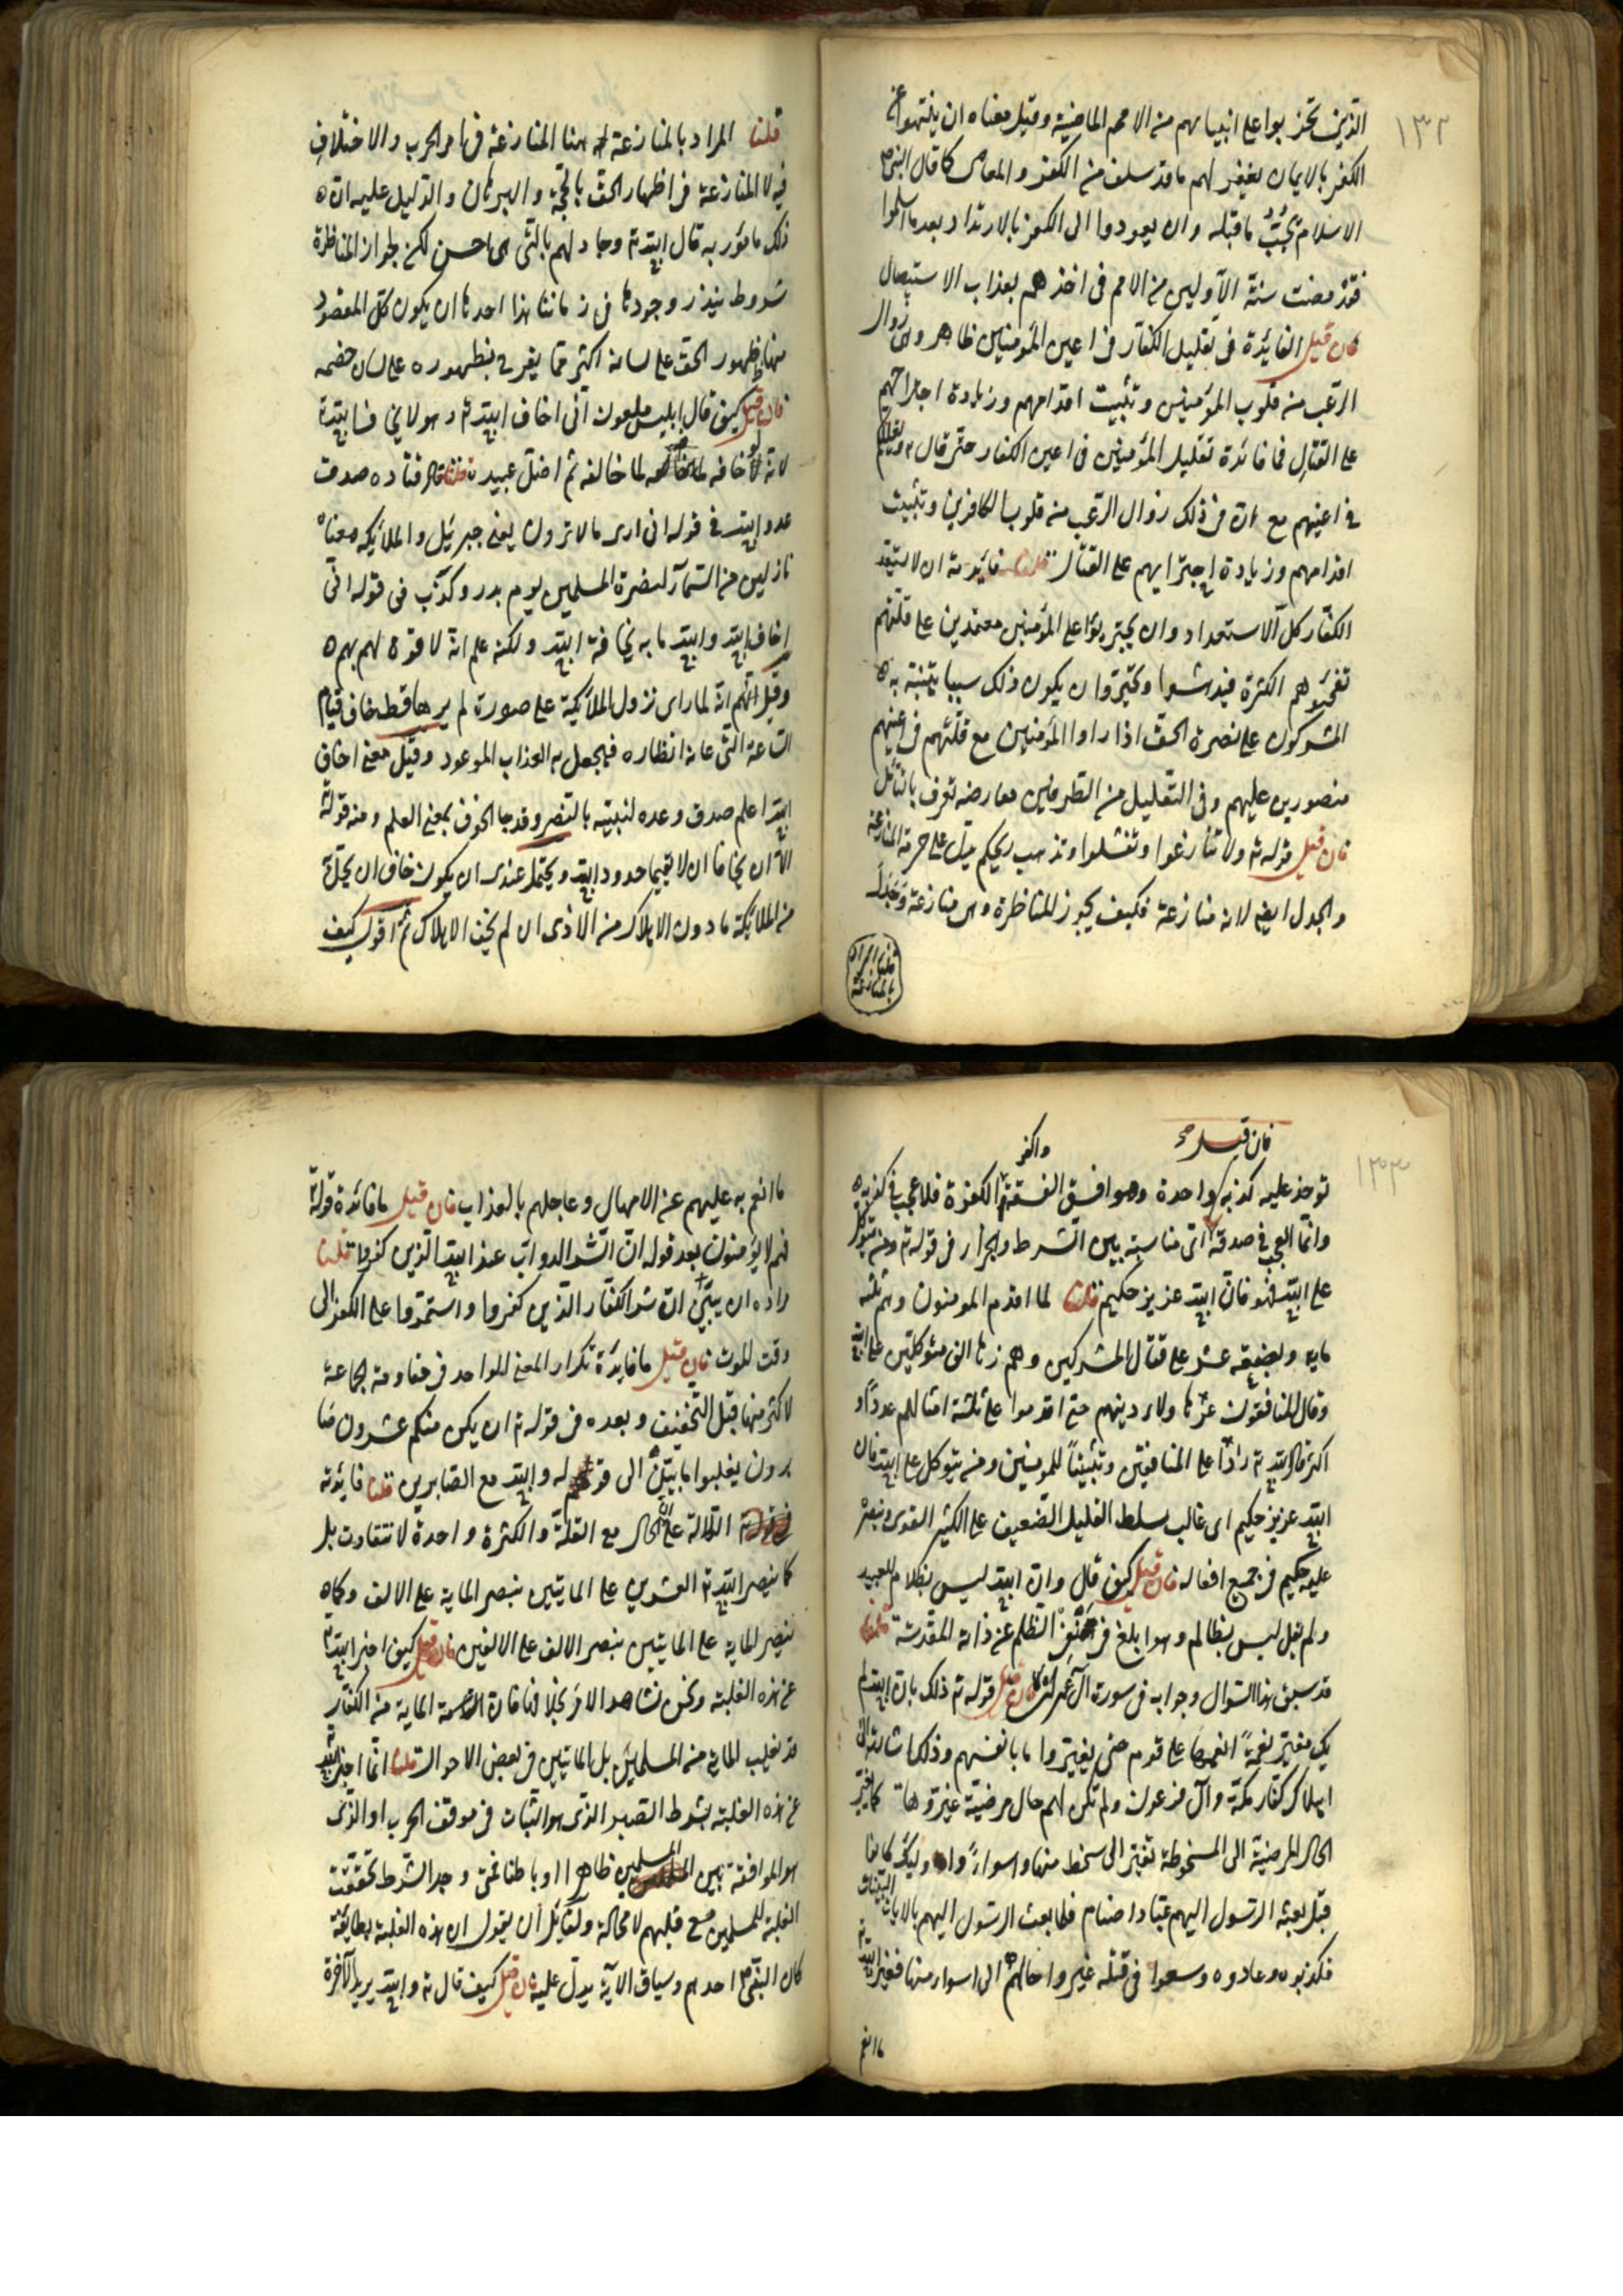 ١٣٢
الذين تحزبوا على انبيائهم من الامم الماضية وقيل معناه ان ينتهوا عن
الكفر بالايمان يغفر لهم ما قد سلف من الكفر والمعاصى كما قال النبى
الاسلام يجب ما قبله وان يعودوا الى الكفر بالارتداد بعد ما اسلموا
فقد مضت سنة الاولين من الامم فى اخذهم بعذاب الاستيصال
فان قيل الفايدة فى تقليل الكفار فى اعين المؤمنين ظاهر وهى زوال
الرعب من قلوب المؤمنين وتثبيت اقدامهم وزيادة اجتراهم
على القتال فما فائدة تقليل المؤمنين فى اعين الكفار حتى قال ويقللكم
فى اعينهم مع ان فى ذلك زوال الرعب من قلوب الكافرين وتثبيت
اقدامهم وزيادة اجترايهم على القتال قلنا فايدته ان لا يستعد
الكفار كل الاستعداد وان يجترؤا على المؤمنين معتمدين على قلتهم
الكثرة فيدهشوا ويتحيروا وان يكون ذلك سببا يتنبه به
المشركون على نصرة الحق اذا راوا المؤمنين مع قلتهم فى اعينهم
منصورين عليهم وفى التقليل من الطرفين معارضة تعرف بالتأمل
فان قيل قوله تع ولا تنازعوا وتفشلوا وتذهب ريحكم يدل على حرمة المنازعة
والجدل ايضا لانه منازعة فكيف يجوز المناظرة وهى منازعة وجدل
قلنا المراد بالمنازعة
قلنا المراد بالمنازعة هنا المنازعة فى امر الحرب والاختلاف
فيه لا المنازعة فى اظهار الحق بالحجة والبرهان والدليل عليه ان
ذلك مامور به قال الله تع وجادلهم بالتى هى احسن لكن لجواز المناظرة
شروط يندر وجودها فى زماننا هذا احدها ان يكون كل المقصود
منها ظهور الحق على لسانه اكثر مما يفرح بظهوره على لسان خصمه
فان قيل كيف قال ابليس ملعون انى اخاف الله تع وهو لا يخاف الله
لانه لو خافه لما خالفه ثم اضل عبيده قلنا قال قتاده صدق
عدو الله فى قوله انى ارى ما لا ترون يعنى جبرئيل والملائكة معناه
نازلين من السماء لنصرة المسلمين يوم بدر وكذب فى قوله انى
اخاف الله والله ما به مخافة الله ولكنه علم انه لا قوة لهم بهم
وقيل انه لما راى نزول الملائكة على صورة لم يرها قط خاف قيام
الساعة التى غاية انظاره فيجعل به العذاب الموعود وقيل معنى اخاف
الله اعلم صدق وعده لنبيه بالنصر وقد جا الخوف بمعنى العلم ومنه قوله تع
الا ان يخافا ان لا يقيما حدود الله ويحتمل عندى ان يكون خاف ان يحل
من الملائكة ما دون الاهلاك من الاذى ان لم يخف الاهلاك ثم اقول كيف
فان قيل صح
١٣٣
تؤخذ عليه كذبة واحدة وهو افسق الفسقة واكفر الكفرة فلا عجب فى كذبه
وانما العجب فى صدقه اى مناسبة بين الشرط والجزاء فى قوله تع ومن يتوكل
على الله فهو فان الله عزيز حكيم قلنا لما اقدم المومنون وهم ثلثه
مايه وبضعة عشر على قتال المشركين وهم زها الف متوكلين على الله
وقال المنافقون غر هؤلاء دينهم حتى اقدموا على ثلثة امثالهم عددا او
اكثر قال الله تع رادا على المنافقين وتثبيتا للمومنين ومن يتوكل على الله فان
الله عزيز حكيم اى غالب يسلط القليل الضعيف على الكثير القوى وينصره
عليه حكيم فى جميع افعاله فان قيل كيف قال وان الله ليس بظلام للعبيد
ولم يقل ليس بظالم وهو ابلغ فى نفى الظلم عن ذاته المقدسة قلنا
قد سبق هذا السوال وجوابه فى سورة آل عمران فان قيل قوله تع ذلك بان الله لم
يك مغيرا نعمة انعمها على قوم حتى يغيروا ما بانفسهم وذلك اشارة الى
اهلاك كفار مكة وآل فرعون ولم تكن لهم حال مرضية غيروها كما يغير
الحال المرضية الى المسخوطة تغير الى اسخط منها واسوا واولئك كانوا
قبل بعثة الرسول اليهم عباد اصنام فلما بعث الرسول اليهم بالايات البينات
فكذبوه وعادوه وسعوا فى قتله غيروا حالهم الى اسوا منها فغير الله تع
ما انعم
ما انعم به عليهم من الامهال وعاجلهم بالعذاب فان قيل ما فائدة قوله تع
فهم لا يؤمنون بعد قوله ان شر الدواب عند الله الذين كفروا قلنا
مراده ان يبين ان شر الكفار الذين كفروا واستمروا على الكفر الى
وقت الموت فان قيل ما فايدة تكرار المعنى الواحد فى مقاومة الجماعة
لاكثر منها قبل التخفيف وبعده فى قوله تع ان يكن منكم عشرون صا
برون يغلبوا مايتين الى قوله والله مع الصابرين قلنا فايدته
الدلالة على ان الحال مع القلة والكثرة واحدة لا تتفاوت بل
كما ينصر الله تع العشرين على المايتين ينصر الماية على الالف وكما
ينصر الماية على المايتين ينصر الالف على الالفين فان قيل كيف اخبر الله تع
عن هذه الغلبة ونحن نشاهد الامر بخلافها فان الماية من الكفار
قد تغلب الماية من المسلمين بل المايتين فى بعض الاحوال قلنا انما اخبر الله
عن هذه الغلبة بشرط الصبر الذى هو الثبات فى موقف الحرب او الذى
هو الموافقة بين المسلمين ظاهرا وباطنا فمتى وجد الشرط تحققت
الغلبة للمسلمين مع قلتهم لا محالة ولقائل ان يقول ان هذه الغلبة بطايفة
كان النبى احدهم وسياق الاية يدل عليه فان قيل كيف قال تع والله يريد الآخرة